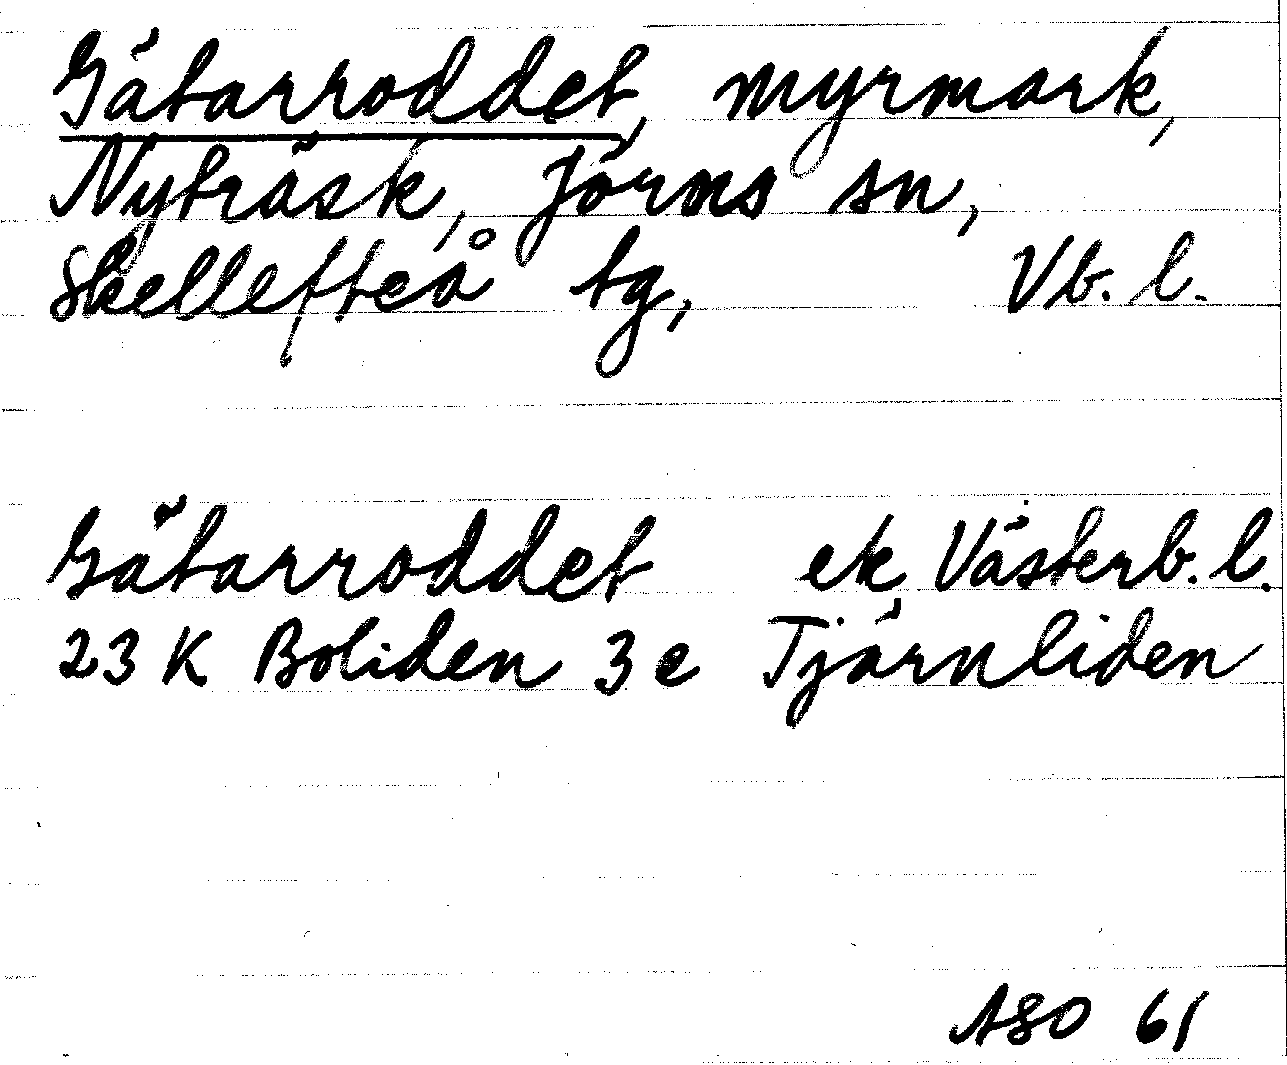 Gätarroddet, myrmark,
Nyträsk, Jörns sn,
Skellefteå tg, Vb. l.
Gätarroddet ek Västerb. l.
23 K Boliden 3 e Tjärnliden
ASO 61